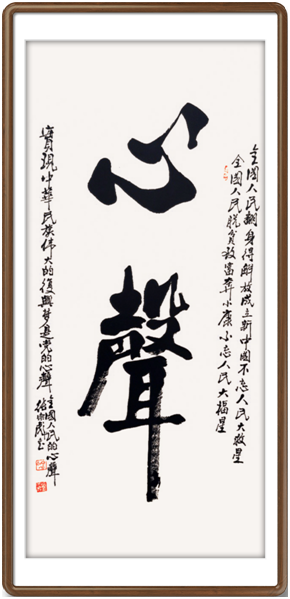 全國人民翻身得解放成立新中國不忘人民大救星
全國人民脱貧致富奔小康不忘人民大福星
心聲
實現中華民族伟大的復興梦是党的心聲全國人民的心聲